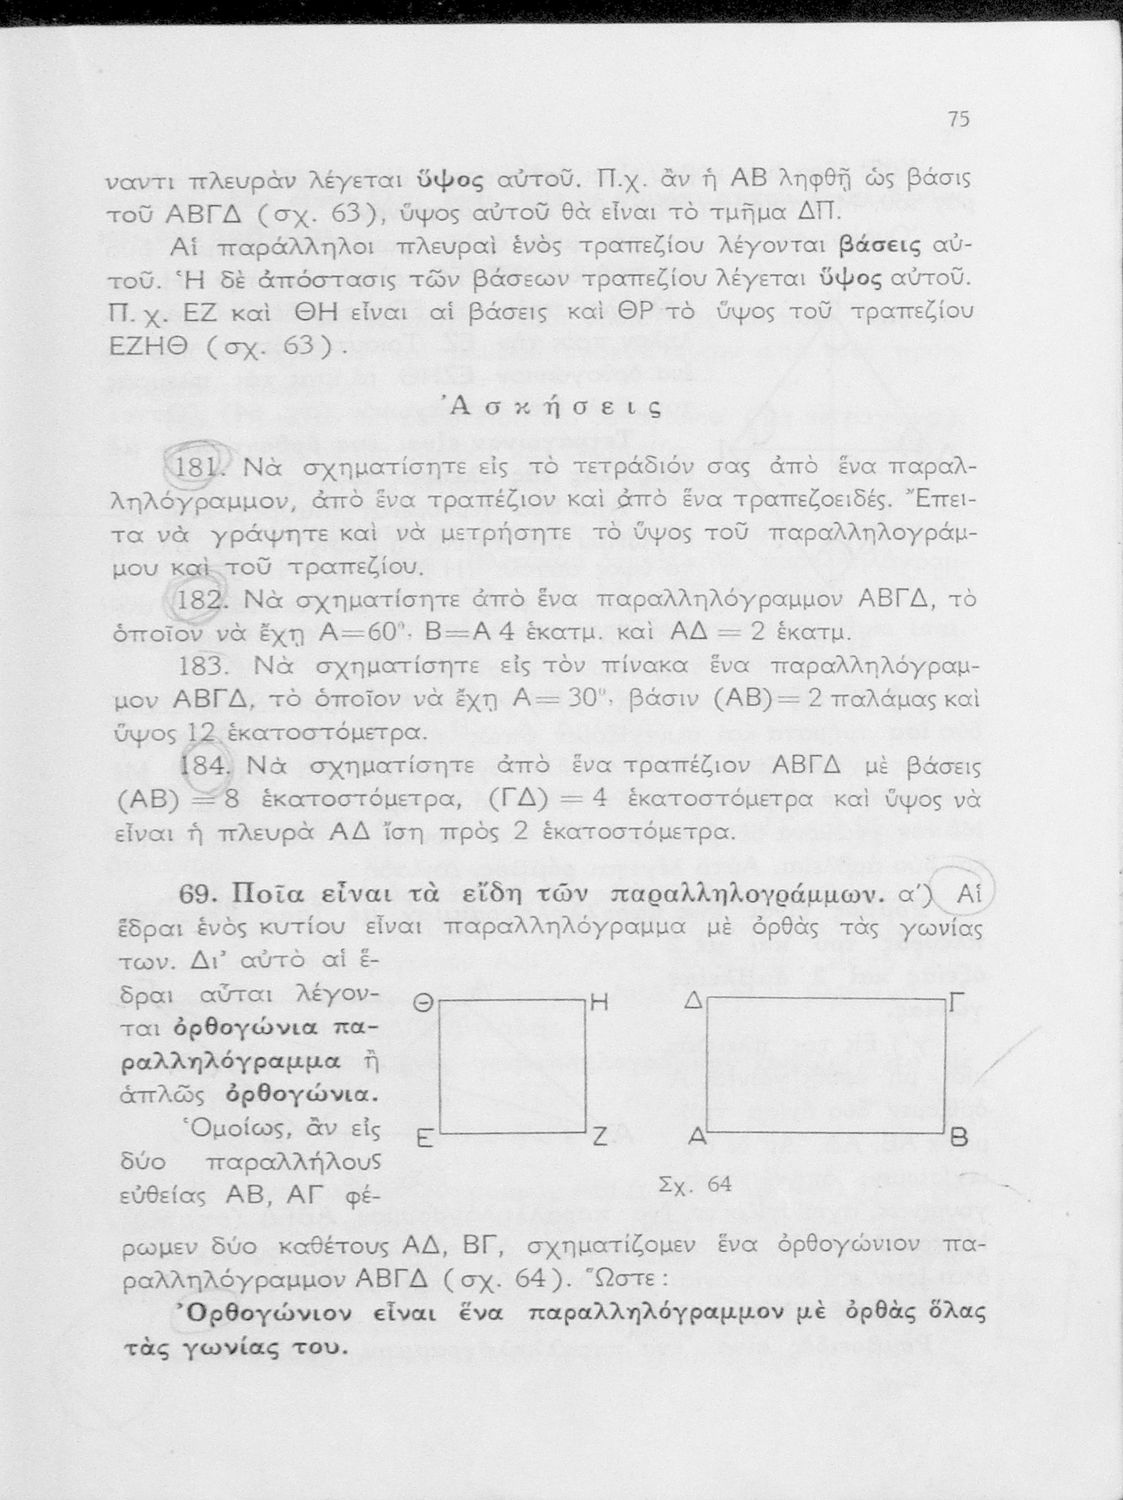 75
ναντι πλευρὰν λέγεται ὕψος αὐτοῦ. Π.χ. ἂν ἡ ΑΒ ληφθῇ ὡς βάσις
τοῦ ΑΒΓΔ (σχ. 63), ὕψος αὐτοῦ θὰ εἶναι τὸ τμῆμα ΔΠ.
Αἱ παράλληλοι πλευραὶ ἑνὸς τραπεζίου λέγονται βάσεις αὐ-
τοῦ. Ἡ δὲ ἀπόστασις τῶν βάσεων τραπεζίου λέγεται ὕψος αὐτοῦ.
Π. χ. ΕΖ καὶ ΘΗ εἶναι αἱ βάσεις καὶ ΘΡ τὸ ὕψος τοῦ τραπεζίου
ΕΖΗΘ (σχ. 63).
Ἀσκήσεις
181. Νὰ σχηματίσητε εἰς τὸ τετράδιόν σας ἀπὸ ἕνα παραλ-
ληλόγραμμον, ἀπὸ ἕνα τραπέζιον καὶ ἀπὸ ἕνα τραπεζοειδές. Ἔπει-
τα νὰ γράψητε καὶ νὰ μετρήσητε τὸ ὕψος τοῦ παραλληλογράμ-
μου καὶ τοῦ τραπεζίου.
182. Νὰ σχηματίσητε ἀπὸ ἕνα παραλληλόγραμμον ΑΒΓΔ, τὸ
ὁποῖον νὰ ἔχῃ Α=60°, Β=Α 4 ἑκατμ. καὶ ΑΔ = 2 ἑκατμ.
183. Νὰ σχηματίσητε εἰς τὸν πίνακα ἕνα παραλληλόγραμ-
μον ΑΒΓΔ, τὸ ὁποῖον νὰ ἔχῃ Α= 30°, βάσιν (ΑΒ)= 2 παλάμας καὶ
ὕψος 12 ἑκατοστόμετρα.
184. Νὰ σχηματίσητε ἀπὸ ἕνα τραπέζιον ΑΒΓΔ μὲ βάσεις
(ΑΒ) = 8 ἑκατοστόμετρα, (ΓΔ) = 4 ἑκατοστόμετρα καὶ ὕψος νὰ
εἶναι ἡ πλευρὰ ΑΔ ἴση πρὸς 2 ἑκατοστόμετρα.
69. Ποῖα εἶναι τὰ εἴδη τῶν παραλληλογράμμων. α′) Αἱ
ἕδραι ἑνὸς κυτίου εἶναι παραλληλόγραμμα μὲ ὀρθὰς τὰς γωνίας
των. Δι᾽ αὐτὸ αἱ ἕ-
δραι αὗται λέγον-
ται ὀρθογώνια πα-
ραλληλόγραμμα ἢ
ἁπλῶς ὀρθογώνια.
Ὁμοίως, ἂν εἰς
δύο παραλλήλους
εὐθείας ΑΒ, ΑΓ φέ-
Θ Η Δ Γ
Ε Ζ Α Β
Σχ. 64
ρωμεν δύο καθέτους ΑΔ, ΒΓ, σχηματίζομεν ἕνα ὀρθογώνιον πα-
ραλληλόγραμμον ΑΒΓΔ (σχ. 64). Ὥστε :
Ὀρθογώνιον εἶναι ἕνα παραλληλόγραμμον μὲ ὀρθὰς ὅλας
τὰς γωνίας του.